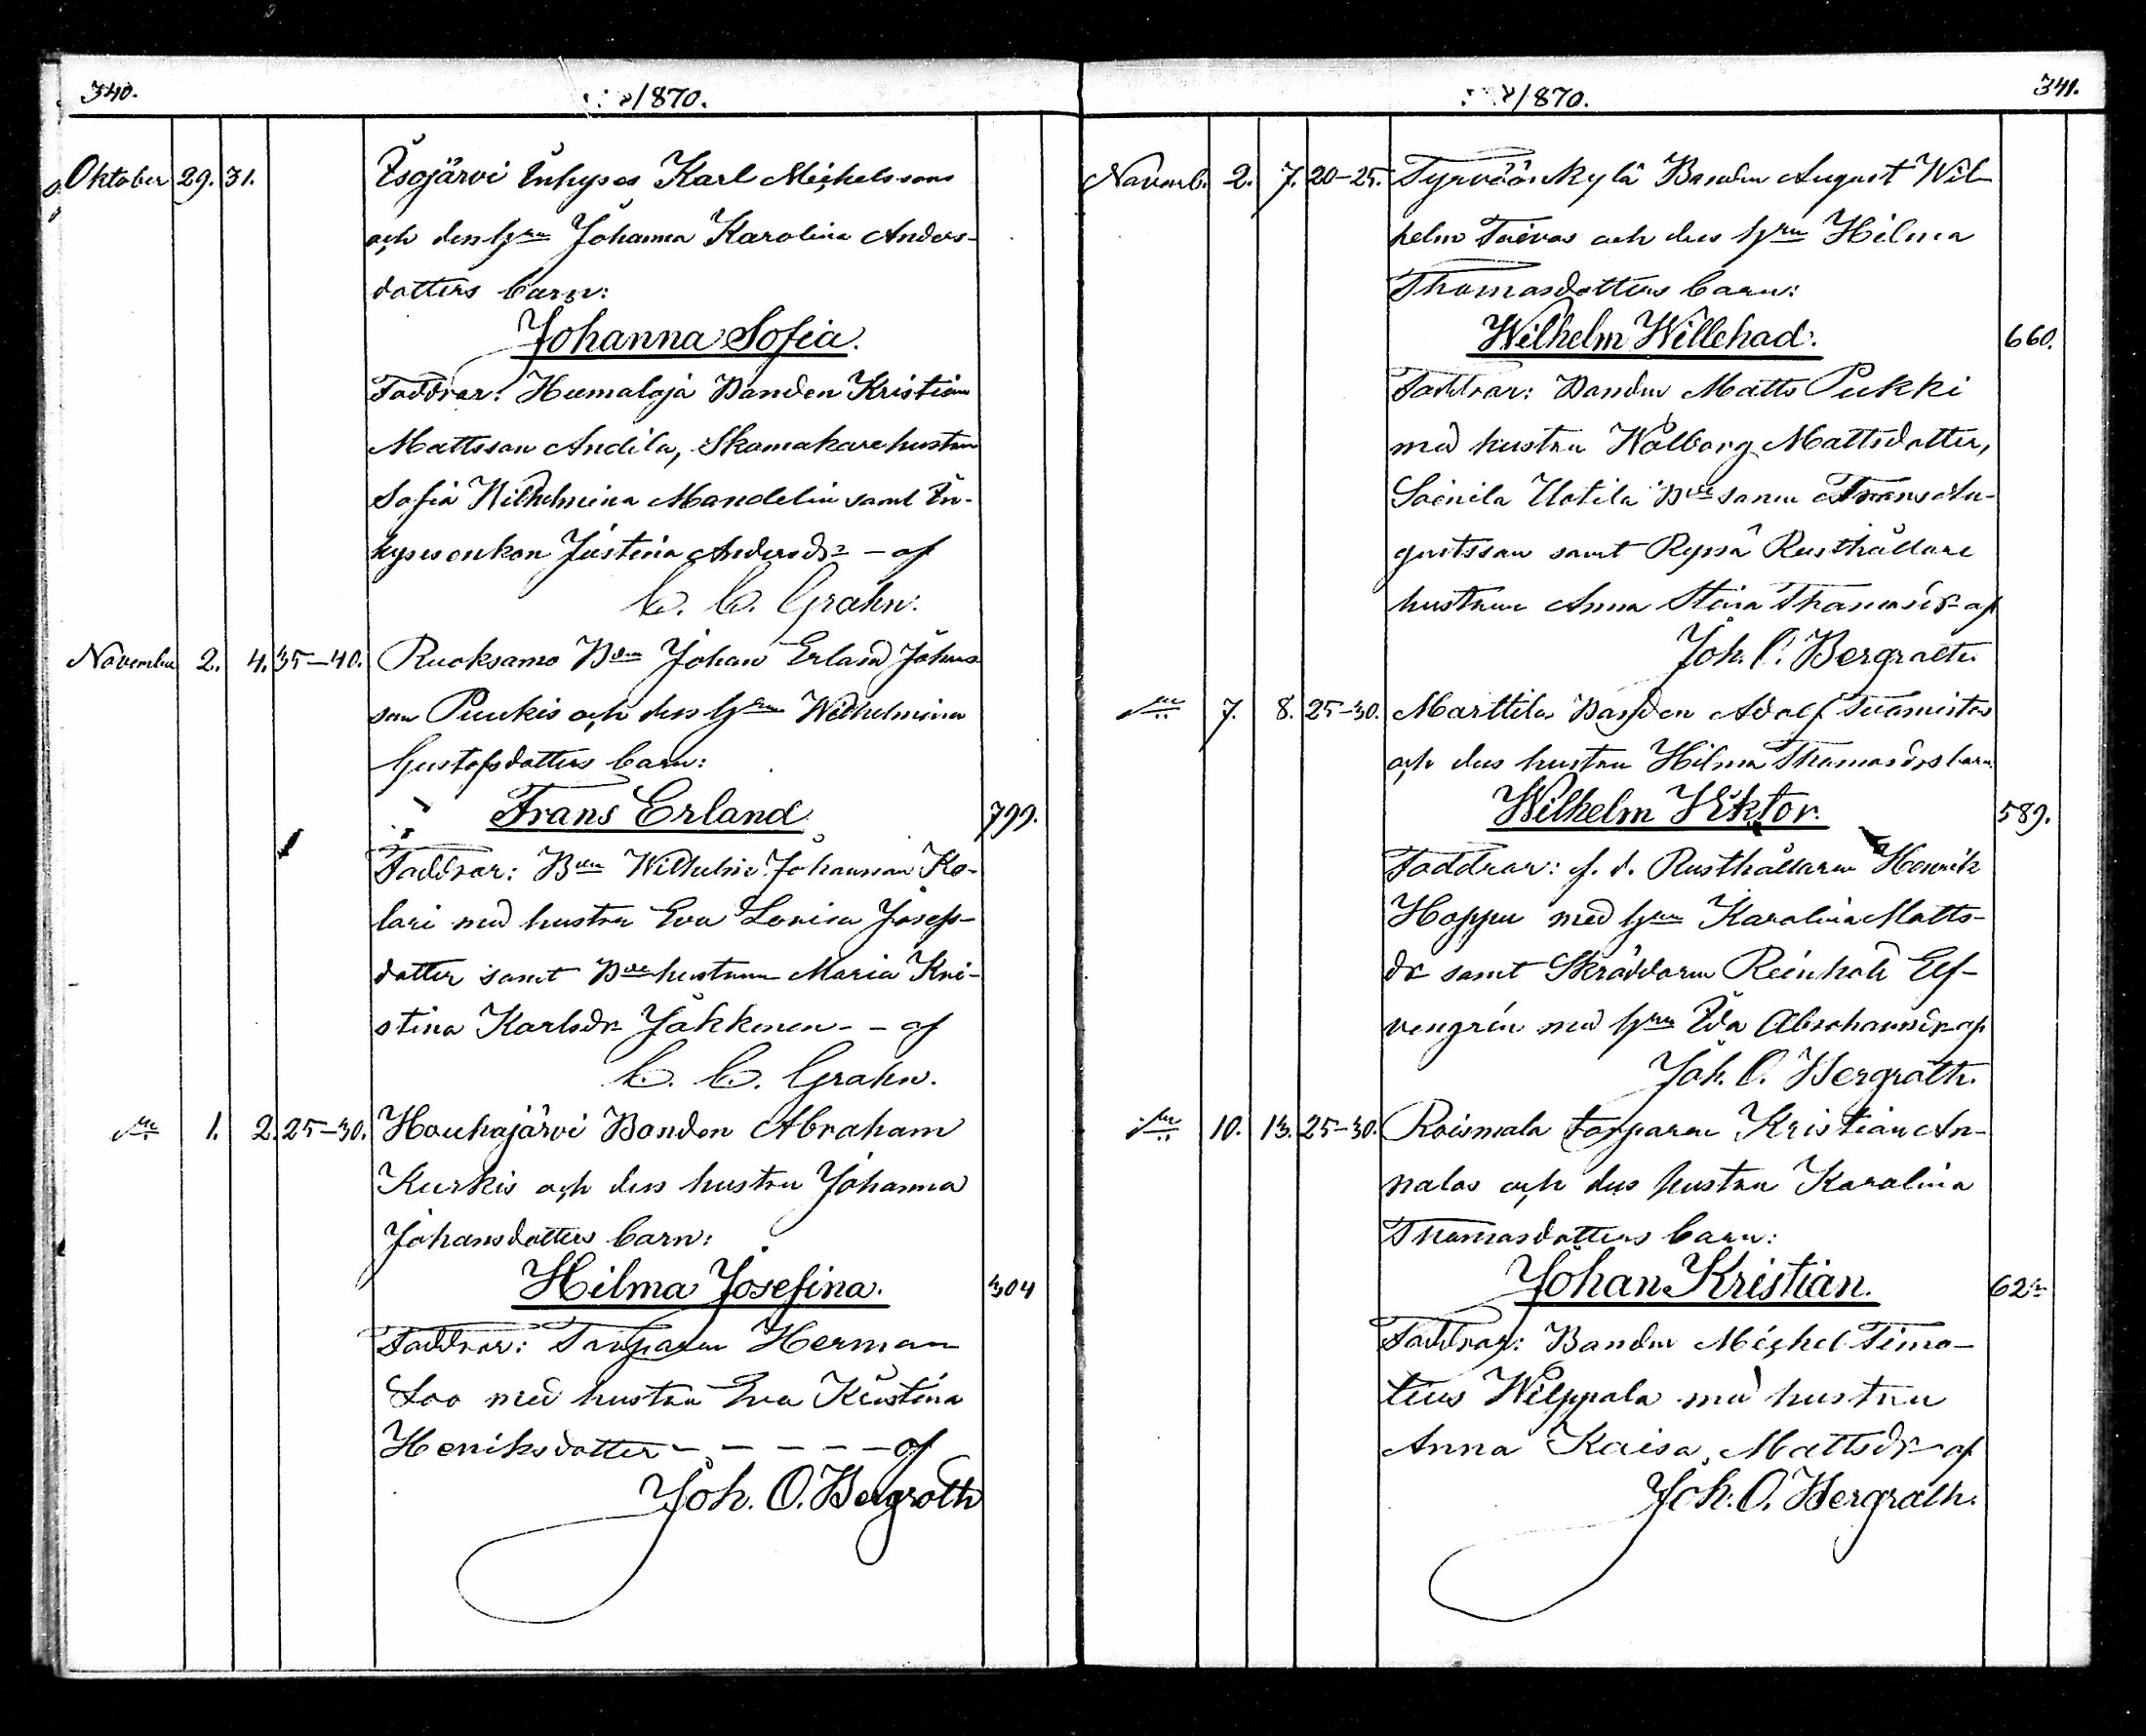 340.
1870.
Oktober 29. 31. Isojärvi Inhyses Karl Michelssons
och dess Hru Johanna Karolina Anders-
dotters barn:
Johanna Sofia.
Faddrar: Humaloja Bonden Kristian
Mattsson Andila, Skomakarehustrun
Sofia Wilhelmina Mandelin samt In-
hysesenkan Justina Andersdr – af
C. C. Grahn.
November 2. 4. 35–40. Ruoksamo Bdn Johan Erland Johans-
son Puukis och dess Hru Wilhelmina
Gustafsdotters barn:
Frans Erland 799.
Faddrar: Bdn Wilhelm Johansson Ko-
lari med hustru Eva Lovisa Josefs-
dotter samt Bdehustrun Maria Kri-
stina Karlsdr Jäkkinen – – af
C. C. Grahn.
1. 2. 25–30. Houhajärvi Bonden Abraham
Kurkis och dess hustru Johanna
Johansdotters barn:
Hilma Josefina. 304
Faddrar: Torparen Herman
Loo med hustru Eva Kristina
Heniksdotter – – – – – af
Joh. O. Bergroth
341.
1870.
Novemb. 2. 7. 20–25. Tyrväänkylä Bonden August Wil-
helm Taivas och dess Hru Hilma
Thomasdotters barn:
Wilhelm Willehad. 660.
Faddrar: Bonden Matts Pukki
med hustru Walborg Mattsdotter,
Soinila Uotila Bdesonen Frans Au-
gustsson samt Ryssä Rusthållare
hustrun Anna Stina Thomasdr af
Joh. O. Bergroth.
7. 8. 25–30. Marttila Bonden Adolf Tuomistos
och dess hustru Hilma Thomasdrs barn.
Wilhelm Viktor. 589.
Faddrar: f. d. Rusthållaren Henrik
Hoppu med Hru Karolina Matts-
dr samt Skräddaren Reinhold Elf-
vengrén med Hru Ida Abrahamsdr af
Joh. O. Bergroth.
10. 13. 25–30. Roismala torparen Kristian An-
nalas och dess hustru Karolina
Thomasdotters barn:
Johan Kristian. 62
Faddrar: Bonden Michel Timo-
teus Wilppala med hustru
Anna Kaisa Mattsdr – af
Joh. O. Bergroth.